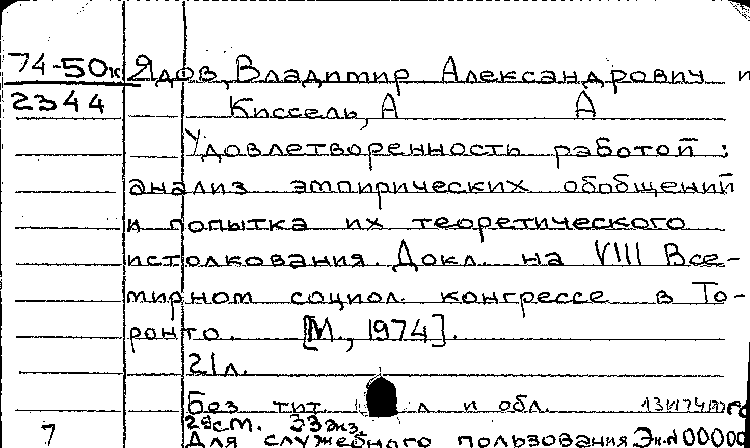 74-50к Ядов, Владимир Александрович и
2344 Киссель, А А
Удовлетворенность работой:
анализ эмпирических обобщений
и попытка их теоретического
истолкования. Докл. на VIII Все-
мирном социол. конгрессе в То-
ронто. [М., 1974].
21л.
Без тит. л и обл.
28см. 23экз.
7 Для служебного пользования Эк.N00000